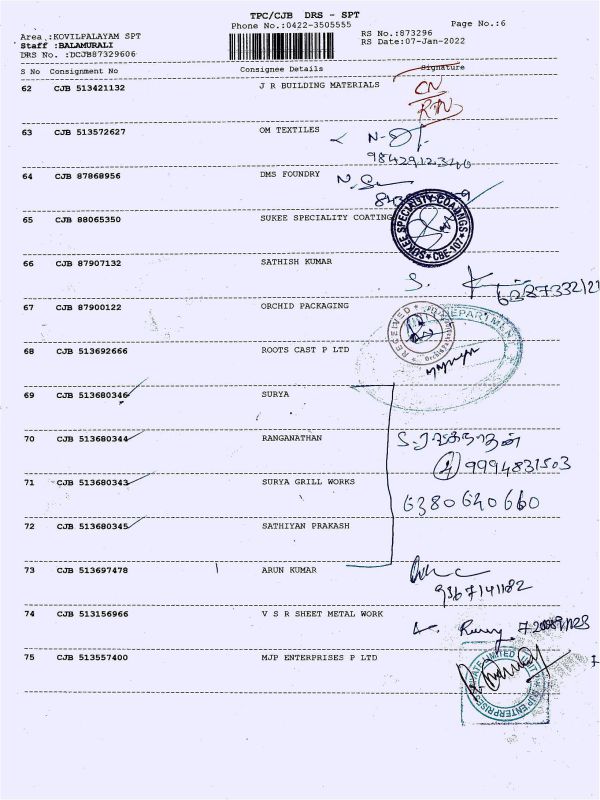 TPC/CJB DRS - SPT
Phone No.:0422-3505555
Page No.:6
Area :KOVILPALAYAM SPT
RS No.:873296
Staff :BALAMURALI
RS Date:07-Jan-2022
DRS No. :DCJB87329606
S No Consignment No Consignee Details Signature
62 CJB 513421132 J R BUILDING MATERIALS
CN
63 CJB 513572627 OM TEXTILES
9842912340
64 CJB 87868956 DMS FOUNDRY
65 CJB 88065350 SUKEE SPECIALITY COATING
SUKEE SPECIALITY COATINGS
CBE-107
66 CJB 87907132 SATHISH KUMAR
67 CJB 87900122 ORCHID PACKAGING
RECEIVED
DEPARTMENT
68 CJB 513692666 ROOTS CAST P LTD
69 CJB 513680346 SURYA
70 CJB 513680344 RANGANATHAN
9994831503
71 CJB 513680343 SURYA GRILL WORKS
6380640660
72 CJB 513680345 SATHIYAN PRAKASH
73 CJB 513697478 ARUN KUMAR
9367141182
74 CJB 513156966 V S R SHEET METAL WORK
75 CJB 513557400 MJP ENTERPRISES P LTD
MJP ENTERPRISES PRIVATE LIMITED